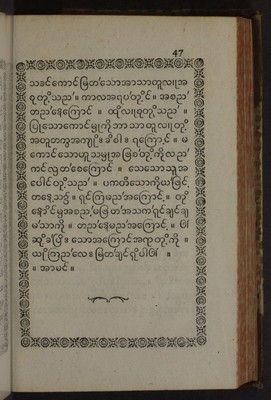 47
သခင်ကောင်မြတ်သောအာသာတူလျှအ
စုတို့သည်။ ကာလအရပ်တို့င်။ အစည်
တည်နေကြောင်း ။ ထိုလူစုတို့သည် ။
ပြုသောကောင်မှုကို ဘာသာတူလူတို့
အတူတကွအကျို။ ခံစိါ။ ရကြောင့် ။ မ
ကောင်သောဟူသမျှအဖြစ်တို့ကိုလည်
ကင်လွတ်စေကြောင် ။ သေသောသူအ
ပေါင်တို့သည် ။ ပကတိသောကိုယ်ဖြင့်
တနေ့သ၌။ ရှင်ကြမည်အကြောင့်။ တို့
နောင်မှအစည်မဖြတ်အသက်ရှင်ချင်ချ
မ်သာကို ။ တည်နေမည်အကြောင့်။
ဆိုခဲ့ပြီ။ သောအကြောင်အရာတို့ကို ။
ယုံကြည်လေ။ မြတ်ချင်ရှိပါ ။
။ အာမင်။